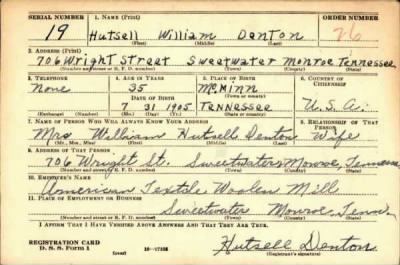 SERIAL NUMBER 1. NAME (Print) ORDER NUMBER
19 Hutsell William Denton 26
(First) (Middle) (Last)
2. ADDRESS (Print)
706 Wright Street Sweetwater Monroe Tennessee
(Number and street or R. F. D. number) (Town) (County) (State)
3. TELEPHONE 4. AGE IN YEARS 5. PLACE OF BIRTH 6. COUNTRY OF CITIZENSHIP
None 35 McMinn
(Town or county)
DATE OF BIRTH
7 31 1905 Tennessee U. S. A.
(Exchange) (Number) (Mo.) (Day) (Yr.) (State or country)
7. NAME OF PERSON WHO WILL ALWAYS KNOW YOUR ADDRESS 8. RELATIONSHIP OF THAT PERSON
Mrs William Hutsell Denton Wife
(Mr., Mrs., Miss) (First) (Middle) (Last)
9. ADDRESS OF THAT PERSON
706 Wright St. Sweetwater Monroe, Tennessee
(Number and street or R. F. D. number) (Town) (County) (State)
10. EMPLOYER'S NAME
American Textile Woolen Mill
11. PLACE OF EMPLOYMENT OR BUSINESS
Sweetwater Monroe, Tenn.
(Number and street or R. F. D. number) (Town) (County) (State)
I AFFIRM THAT I HAVE VERIFIED ABOVE ANSWERS AND THAT THEY ARE TRUE.
REGISTRATION CARD
D. S. S. Form 1 (over) 16-17105 Hutsell Denton
(Registrant's signature)